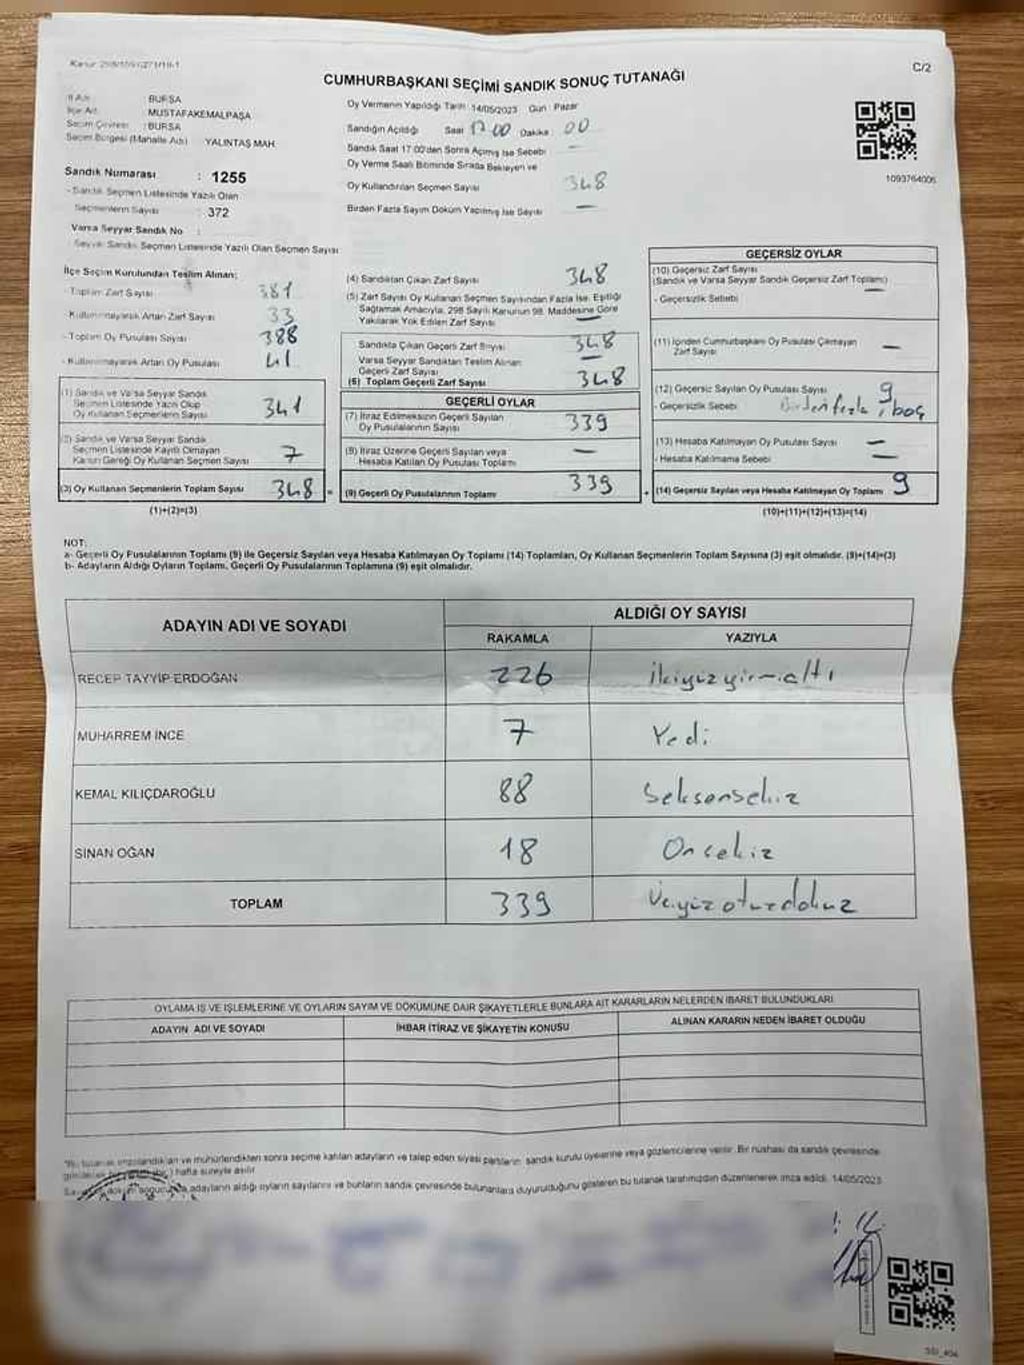 C/2
CUMHURBAŞKANI SEÇİMİ SANDIK SONUÇ TUTANAĞI
İl Adı : BURSA
İlçe Adı : MUSTAFAKEMALPAŞA
Seçim Çevresi : BURSA
Seçim Bölgesi (Mahalle Adı) : YALINTAŞ MAH.
Sandık Numarası : 1255
- Sandık Seçmen Listesinde Yazılı Olan
Seçmenlerin Sayısı : 372
Varsa Seyyar Sandık No :
- Seyyar Sandık Seçmen Listesinde Yazılı Olan Seçmen Sayısı
Oy Vermenin Yapıldığı Tarih: 14/05/2023 Gün : Pazar
Sandığın Açıldığı Saat 17 00 Dakika 00
Sandık Saat 17:00'den Sonra Açılmış İse Sebebi —
Oy Verme Saati Bitiminde Sırada Bekleyen ve
Oy Kullandırılan Seçmen Sayısı 348
Birden Fazla Sayım Döküm Yapılmış İse Sayısı —
1093764006
İlçe Seçim Kurulundan Teslim Alınan:
- Toplam Zarf Sayısı 381
- Kullanılmayarak Artan Zarf Sayısı 33
- Toplam Oy Pusulası Sayısı 388
- Kullanılmayarak Artan Oy Pusulası 41
(1) Sandık ve Varsa Seyyar Sandık
Seçmen Listesinde Yazılı Olup
Oy Kullanan Seçmenlerin Sayısı 341
(2) Sandık ve Varsa Seyyar Sandık
Seçmen Listesinde Kayıtlı Olmayan
Kanun Gereği Oy Kullanan Seçmen Sayısı 7
(3) Oy Kullanan Seçmenlerin Toplam Sayısı 348 =
(1)+(2)=(3)
(4) Sandıktan Çıkan Zarf Sayısı 348
(5) Zarf Sayısı Oy Kullanan Seçmen Sayısından Fazla İse, Eşitliği
Sağlamak Amacıyla, 298 Sayılı Kanunun 98. Maddesine Göre
Yakılarak Yok Edilen Zarf Sayısı —
Sandıkta Çıkan Geçerli Zarf Sayısı 348
Varsa Seyyar Sandıktan Teslim Alınan
Geçerli Zarf Sayısı —
(6) Toplam Geçerli Zarf Sayısı 348
GEÇERLİ OYLAR
(7) İtiraz Edilmeksizin Geçerli Sayılan
Oy Pusulalarının Sayısı 339
(8) İtiraz Üzerine Geçerli Sayılan veya
Hesaba Katılan Oy Pusulası Toplamı —
(9) Geçerli Oy Pusulalarının Toplamı 339 +
GEÇERSİZ OYLAR
(10) Geçersiz Zarf Sayısı
(Sandık ve Varsa Seyyar Sandık Geçersiz Zarf Toplamı) —
- Geçersizlik Sebebi
(11) İçinden Cumhurbaşkanı Oy Pusulası Çıkmayan
Zarf Sayısı —
(12) Geçersiz Sayılan Oy Pusulası Sayısı 9
- Geçersizlik Sebebi Birden fazla, boş
(13) Hesaba Katılmayan Oy Pusulası Sayısı —
- Hesaba Katılmama Sebebi —
(14) Geçersiz Sayılan veya Hesaba Katılmayan Oy Toplamı 9
(10)+(11)+(12)+(13)=(14)
NOT:
a- Geçerli Oy Pusulalarının Toplamı (9) ile Geçersiz Sayılan veya Hesaba Katılmayan Oy Toplamı (14) Toplamları, Oy Kullanan Seçmenlerin Toplam Sayısına (3) eşit olmalıdır. (9)+(14)=(3)
b- Adayların Aldığı Oyların Toplamı, Geçerli Oy Pusulalarının Toplamına (9) eşit olmalıdır.
ADAYIN ADI VE SOYADI ALDIĞI OY SAYISI
RAKAMLA YAZIYLA
RECEP TAYYİP ERDOĞAN 226 İkiyüzyirmialtı
MUHARREM İNCE 7 Yedi
KEMAL KILIÇDAROĞLU 88 Seksensekiz
SİNAN OĞAN 18 Onsekiz
TOPLAM 339 Üçyüzotuzdokuz
OYLAMA İŞ VE İŞLEMLERİNE VE OYLARIN SAYIM VE DÖKÜMÜNE DAİR ŞİKAYETLERLE BUNLARA AİT KARARLARIN NELERDEN İBARET BULUNDUKLARI
ADAYIN ADI VE SOYADI İHBAR İTİRAZ VE ŞİKAYETİN KONUSU ALINAN KARARIN NEDEN İBARET OLDUĞU
*Bu tutanak imzalandıktan ve mühürlendikten sonra seçime katılan adayların ve talep eden siyasi partilerin sandık kurulu üyelerine veya gözlemcilerine verilir. Bir nüshası da sandık çevresinde
hafta süreyle asılır.
adayların aldığı oyların sayılarını ve bunların sandık çevresinde bulunanlara duyurulduğunu gösteren bu tutanak tarafımızdan düzenlenerek imza edildi. 14/05/2023